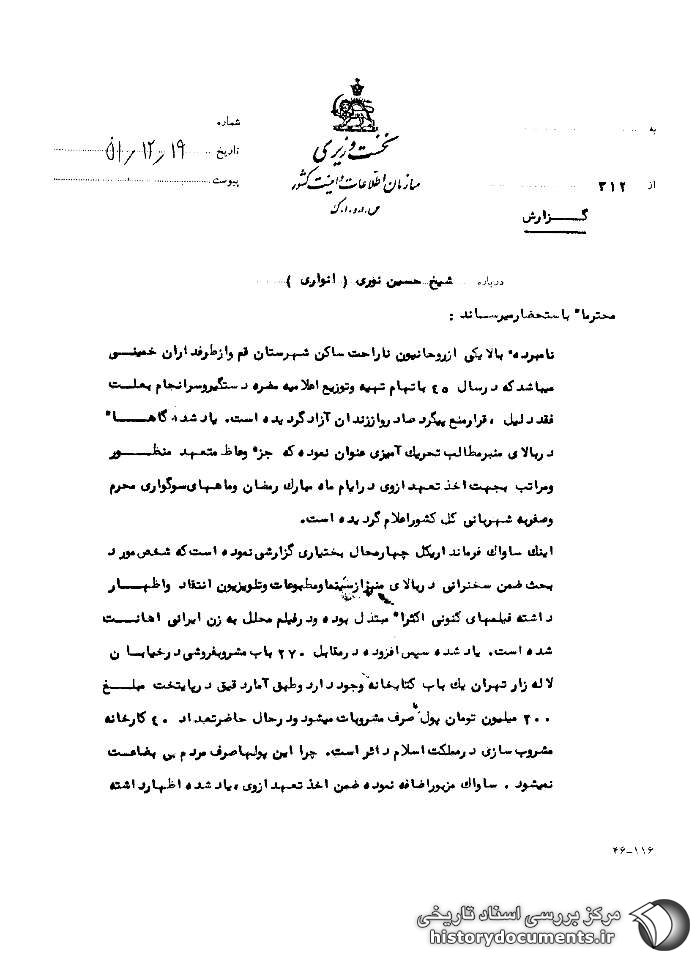 به
شماره
تاریخ ۵۱/۱۲/۱۹
پیوست
نخست وزیری
سازمان اطلاعات و امنیت کشور
س.ا.و.ا.ک
از ۳۱۲
گزارش
درباره شیخ حسین نوری ( انواری )
محترما" باستحضار میرساند :
نامبرده بالا یکی از روحانیون ناراحت ساکن شهرستان قم و از طرفداران خمینی
میباشد که در سال ۴۵ باتهام تهیه و توزیع اعلامیه مضره دستگیر و سرانجام بعلت
فقد دلیل ، قرار منع پیگرد صادر و از زندان آزاد گردیده است. یاد شده گاها"
در بالای منبر مطالب تحریک آمیزی عنوان نموده که جزء وعاظ متعهد منظور
و مراتب بجهت اخذ تعهد از وی در ایام ماه مبارک رمضان و ماههای سوگواری محرم
و صفر به شهربانی کل کشور اعلام گردیده است.
اینک ساواک فرمانداریکل چهارمحال بختیاری گزارشی نموده است که شخص مورد
بحث ضمن سخنرانی در بالای منبر از سینما و مطبوعات و تلویزیون انتقاد و اظهار
داشته فیلمهای کنونی اکثرا" مبتذل بوده و در فیلم محلل به زن ایرانی اهانت
شده است. یاد شده سپس افزوده در مقابل ۲۷۰ باب مشروبفروشی در خیابان
لاله زار تهران یک باب کتابخانه وجود دارد و طبق آمار دقیق در پایتخت مبلغ
۲۰۰ میلیون تومان پول صرف مشروبات میشود و در حال حاضر تعداد ۴۰ کارخانه
مشروب سازی در مملکت اسلام دائر است. چرا این پولها صرف مردم بی بضاعت
نمیشود . ساواک مزبور اضافه نموده ضمن اخذ تعهد از وی ، یاد شده اظهار داشته
۴۶-۱۱۶
مرکز بررسی اسناد تاریخی
historydocuments.ir